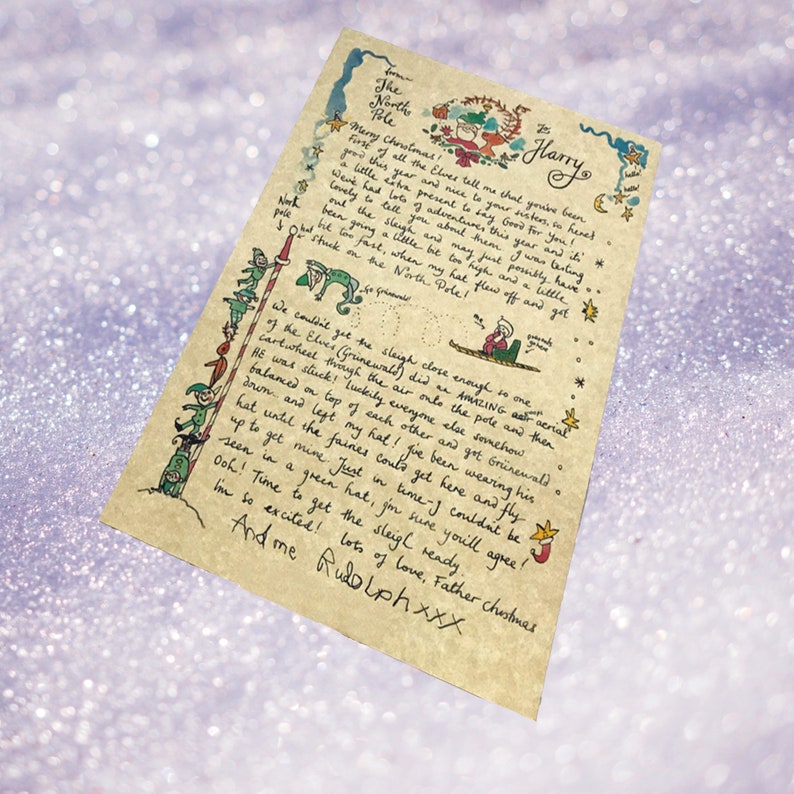 from
The
North
Pole
To
Harry
hello!
hello!
Merry Christmas!
First of all the Elves tell me that you've been
good this year and nice to your sisters, so here's
a little extra present to say Good For You!
We've had lots of adventures this year and it's
lovely to tell you about them. I was testing
out the sleigh and may just possibly have
been going a little bit too high and a little
bit too fast, when my hat flew off and got
stuck on the North Pole!
North
pole
hat
Go Grünewald!
me
presents
go here
We couldn't get the sleigh close enough so one
of the Elves (Grünewald) did an AMAZING aerial
cartwheel through the air onto the pole and then
HE was stuck! Luckily everyone else somehow
balanced on top of each other and got Grünewald
down.. and left my hat! I've been wearing his
hat until the fairies could get here and fly
up to get mine. Just in time - I couldn't be
seen in a green hat, I'm sure you'll agree!
Ooh! Time to get the sleigh ready.
I'm so excited! Lots of love, Father Christmas
And me Rudolph xxx